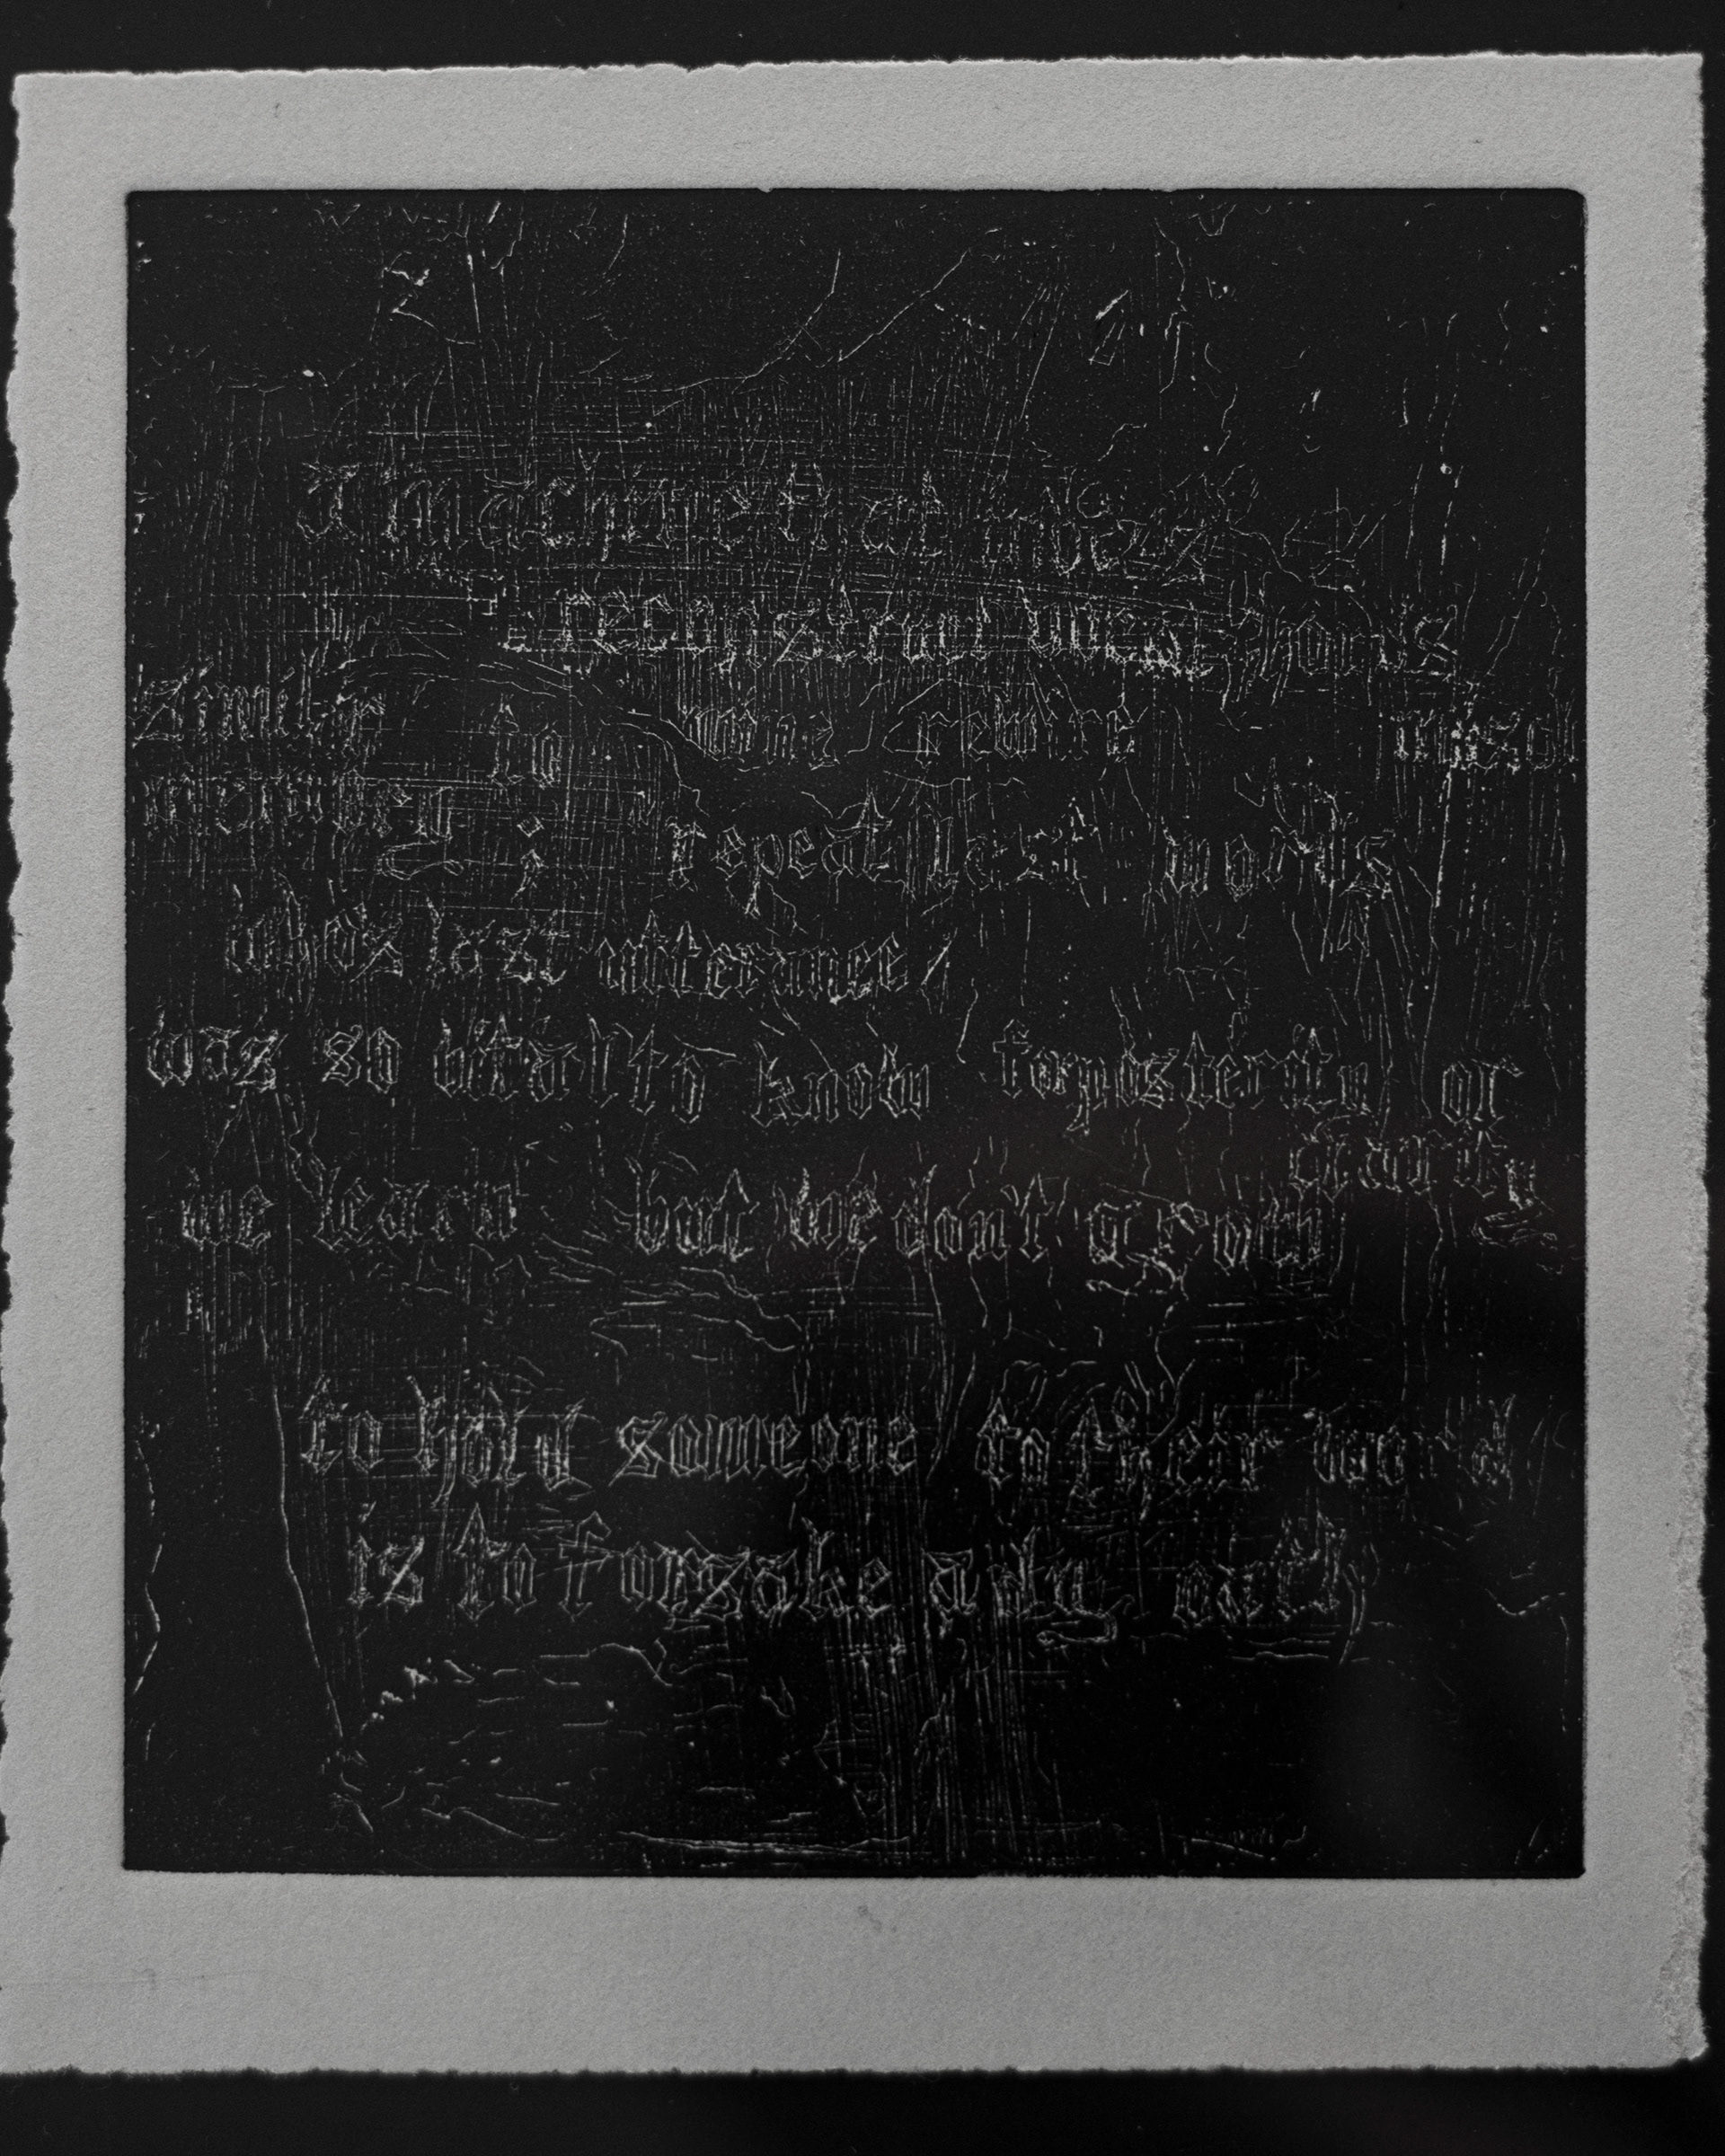 a machine that
reconstruct
similar to mine rewire
repeat last words
whos last utterance
was so vital to know for posterity or
clarity
we learn but we don't
to hold someone to their word
is to forsake any oath